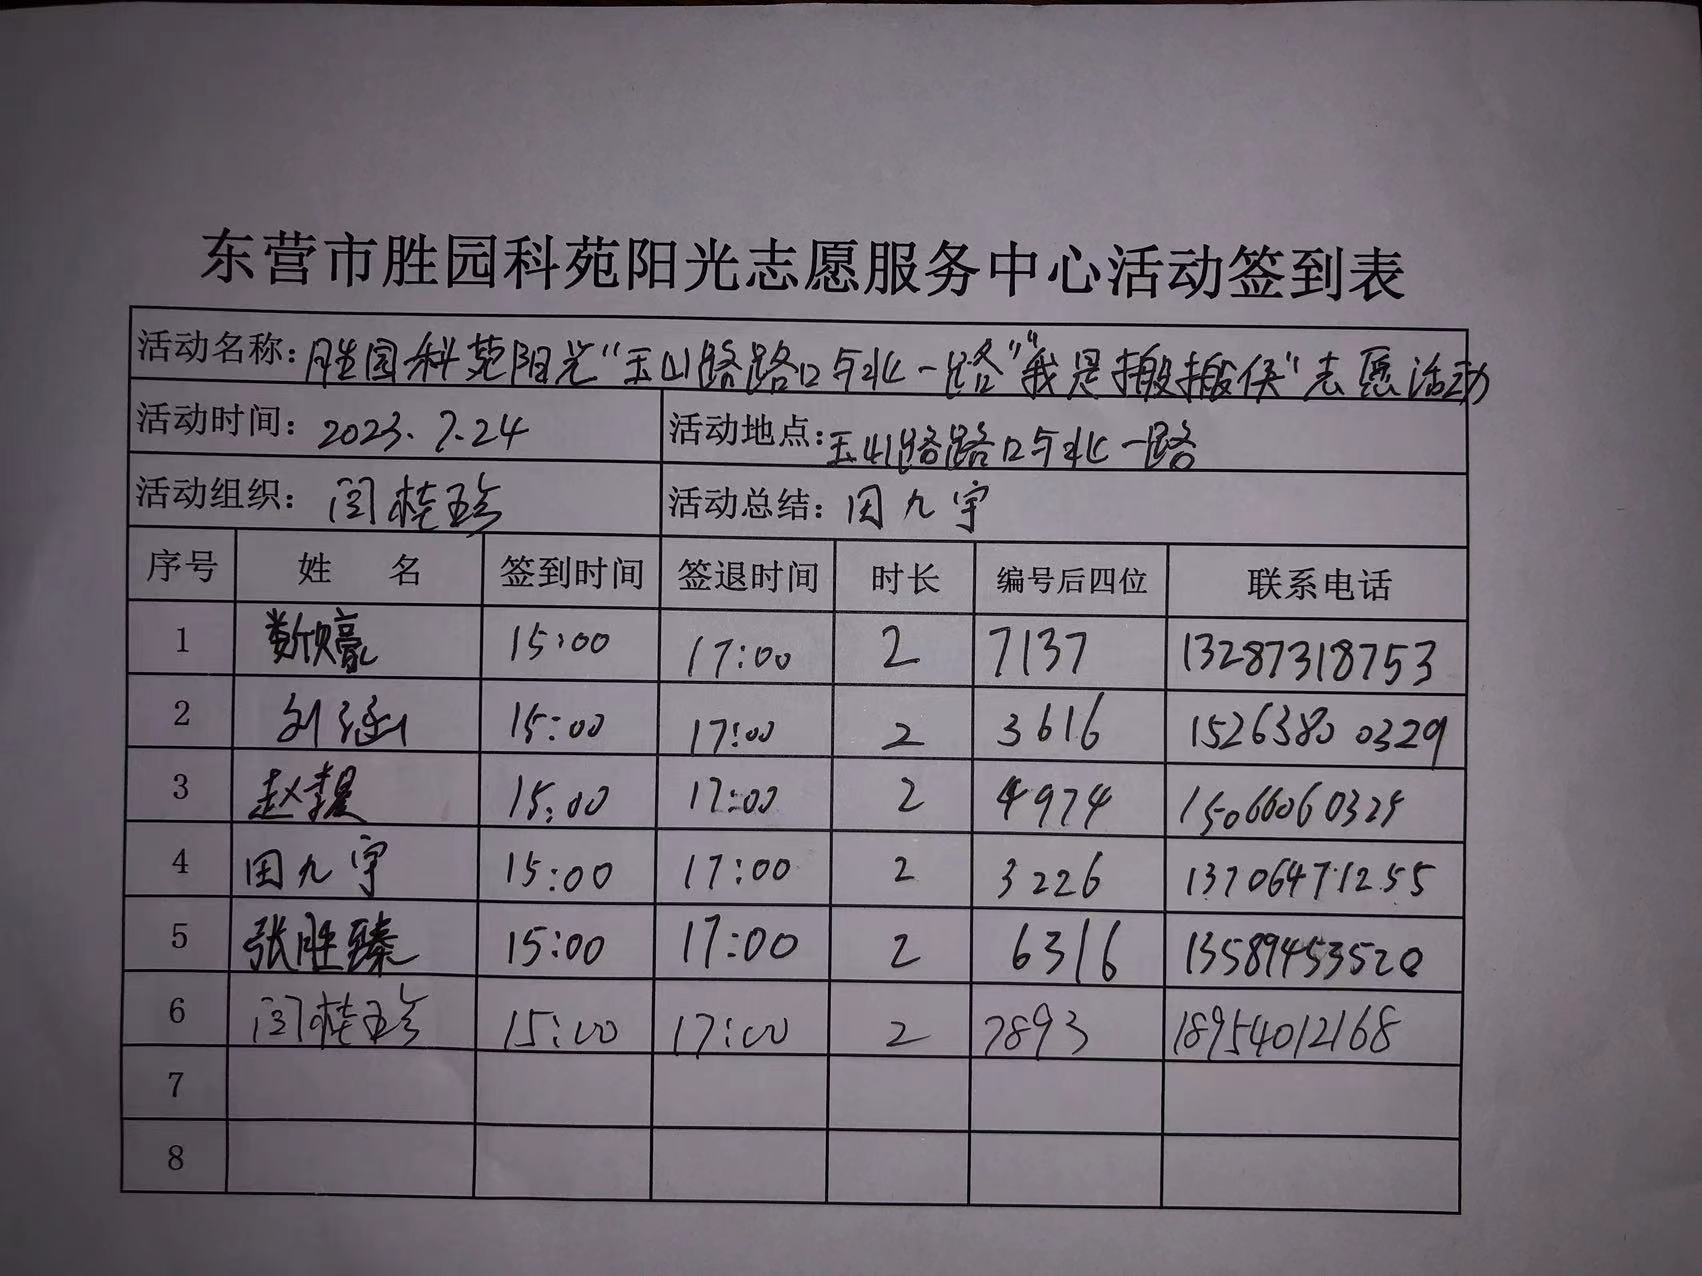 东营市胜园科苑阳光志愿服务中心活动签到表
活动名称：胜园科苑阳光“玉山路路口与北一路”“我是搬搬侠”志愿活动
活动时间：2023.7.24 活动地点：玉山路路口与北一路
活动组织：闫桂珍 活动总结：田九宇
序号 姓 名 签到时间 签退时间 时长 编号后四位 联系电话
1 15:00 17:00 2 7137 13287318753
2 刘涵 15:00 17:00 2 3616 15263800329
3 赵 15:00 17:00 2 4974
4 田九宇 15:00 17:00 2 3226 13706471255
5 张胜臻 15:00 17:00 2 6316 13589453520
6 闫桂珍 15:00 17:00 2 7893 18954012168
7
8